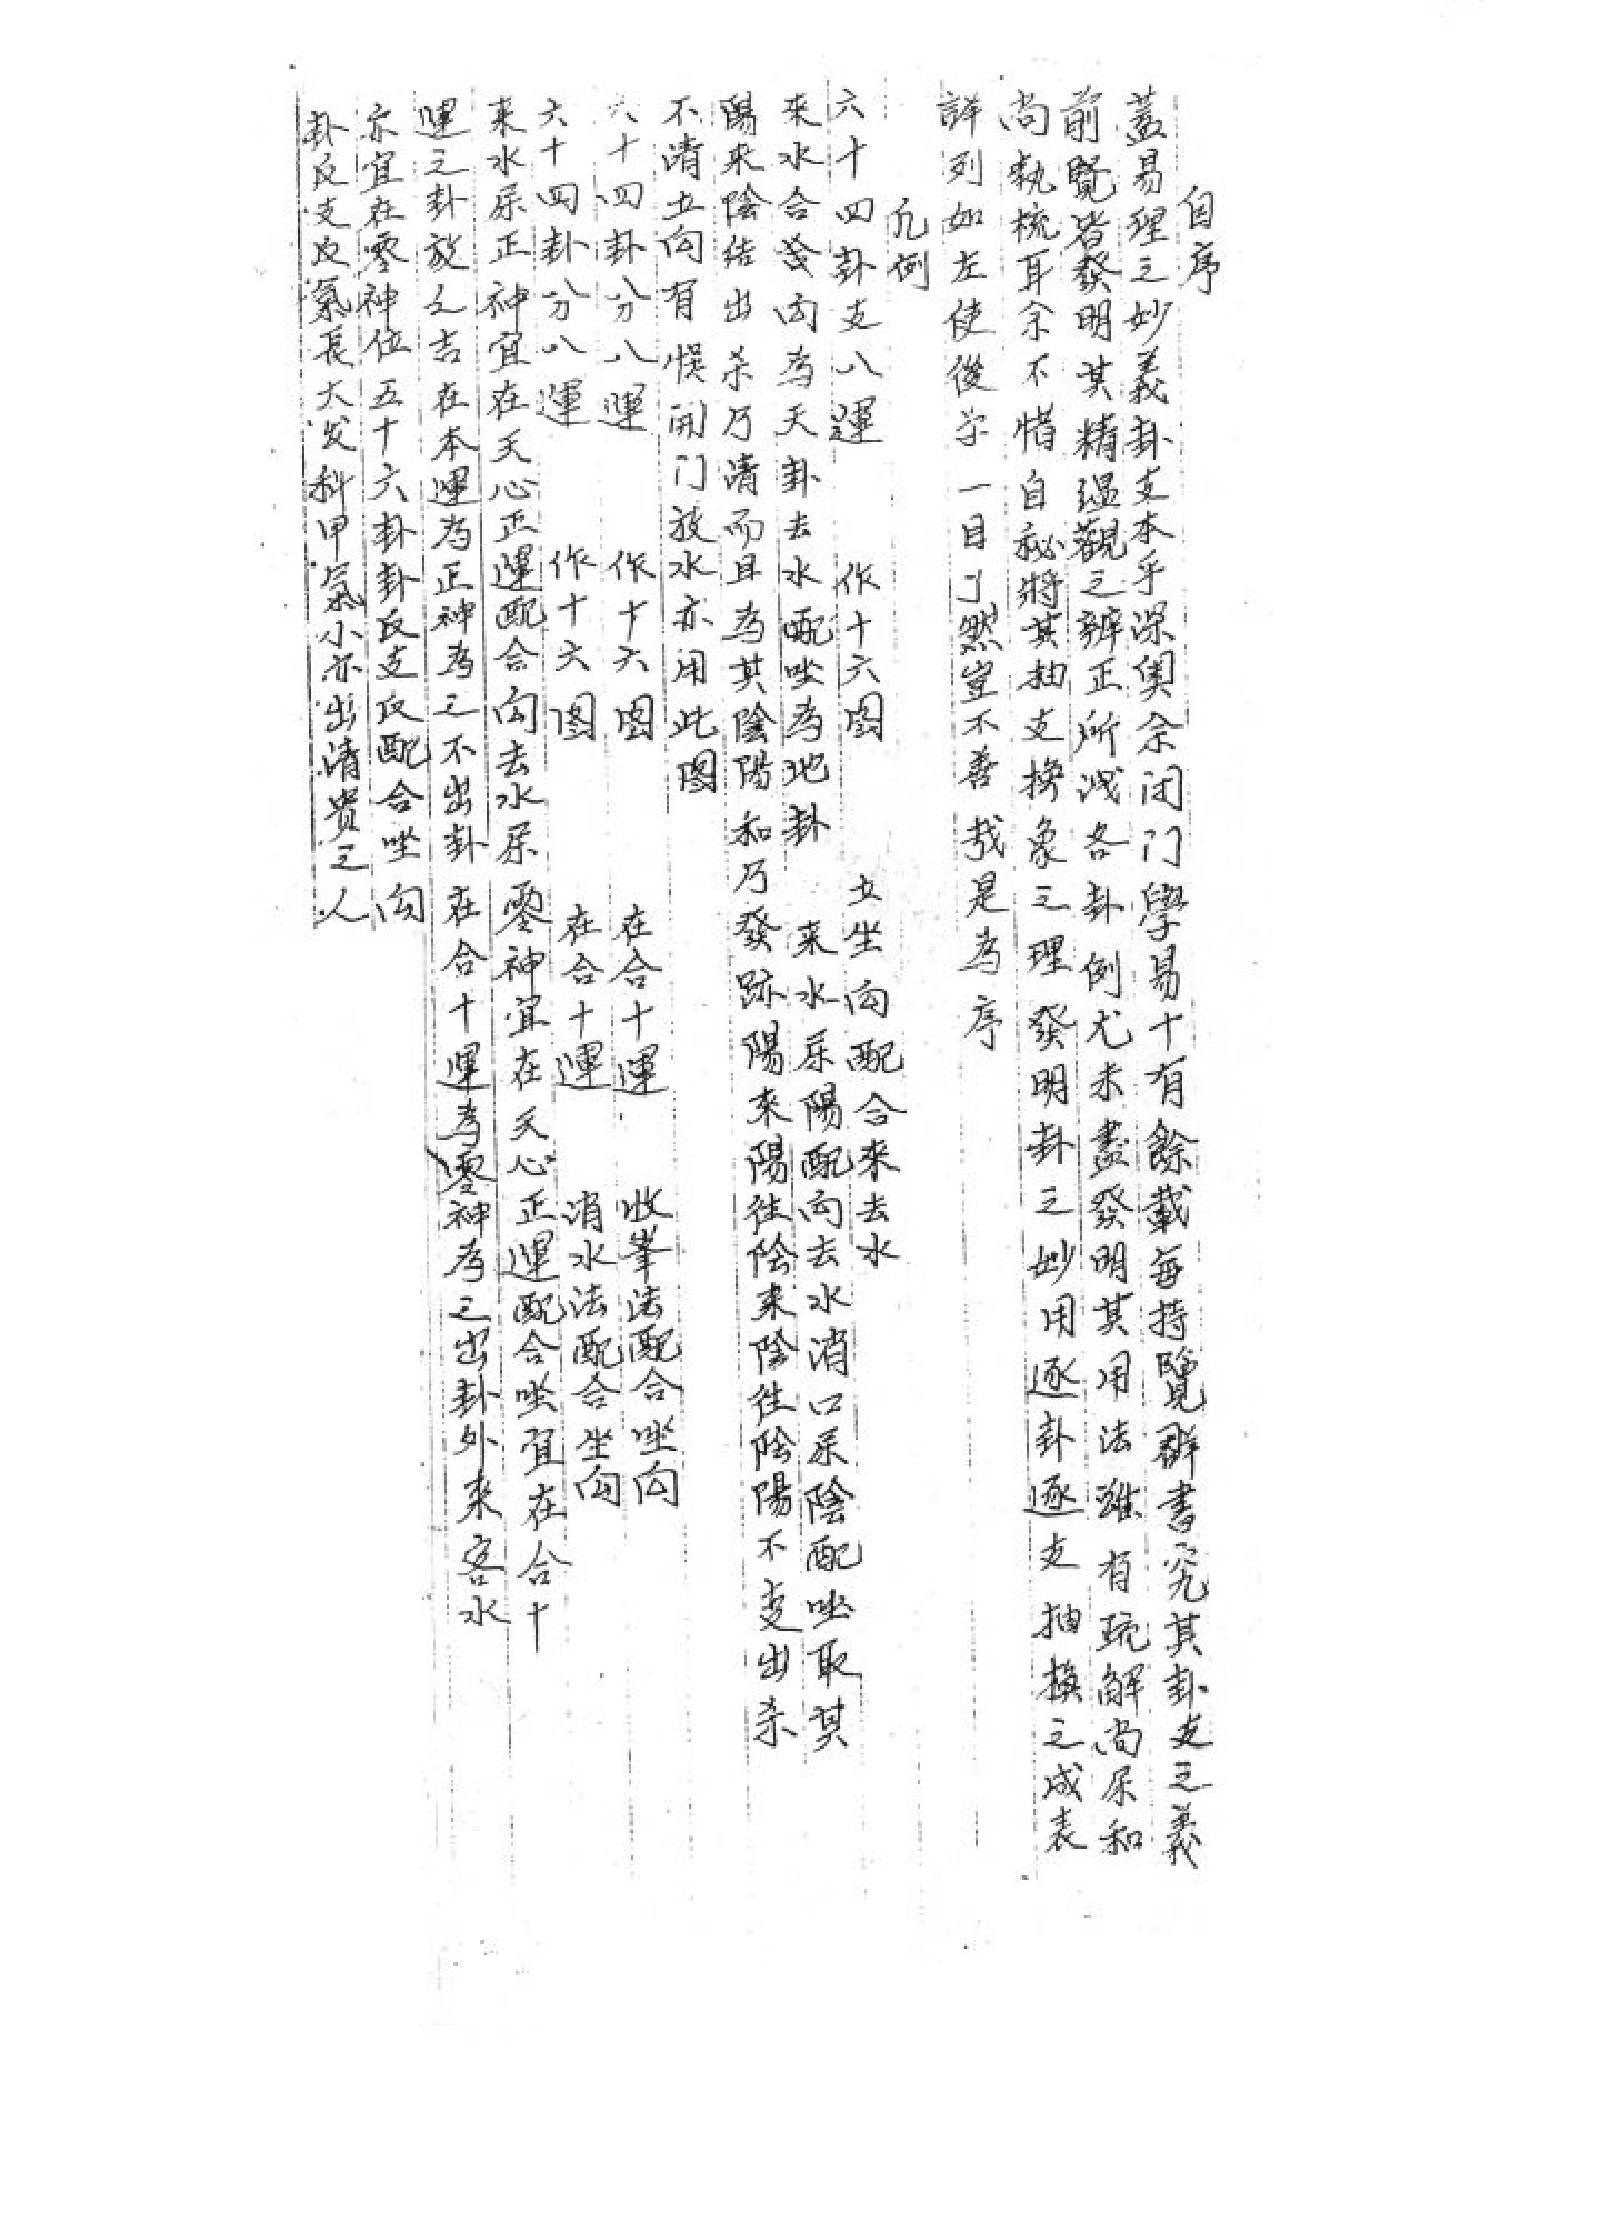 自序
蓋易理之妙義卦爻本乎深奧余闭门學易十有餘載每持覽群書究其卦爻之義
前賢皆發明其精蕴觀之辨正所洩各卦例尤未盡發明其用法雖有疏解尚屎和
尚執梳耳余不惜自秘將其抽爻換象之理發明卦之妙用逐卦逐爻抽換之成表
詳列如左使後学一目了然豈不善哉是為序
凡例
六十四卦爻八運 作十六图 立坐向配合來去水
來水合向為天卦去水配坐為地卦 来水屎陽配向去水消口屎陰配坐取其
陽来陰结出杀乃清而且為其陰陽和乃發跡陽來陽往陰来陰往陰陽不变出杀
不清立向有悞開门放水亦用此图
六十四卦分八運 作十六图 在合十運 收峯法配合坐向
六十四卦分八運 作十六图 在合十運 消水法配合坐向
来水屎正神宜在天心正運配合向去水屎零神宜在天心正運配合坐宜在合十
運之卦放之吉在本運為正神為之不出卦在合十運為零神為之出卦外来客水
亦宜在零神位五十六卦卦反爻反配合坐向
卦反爻反氣長大发科甲氣小亦出清贵之人